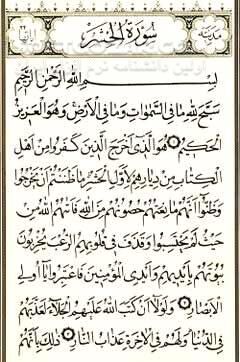 سورة الحشر
بسم الله الرحمن الرحيم
سبح لله ما في السموات وما في الأرض وهو العزيز
الحكيم هو الذي أخرج الذين كفروا من أهل
الكتاب من ديارهم لأول الحشر ما ظننتم أن يخرجوا
وظنوا أنهم مانعتهم حصونهم من الله فأتىهم الله من
حيث لم يحتسبوا وقذف في قلوبهم الرعب يخربون
بيوتهم بأيديهم وأيدي المؤمنين فاعتبروا يا أولي
الأبصار ولولا أن كتب الله عليهم الجلاء لعذبهم
في الدنيا ولهم في الآخرة عذاب النار ذلك بأنهم